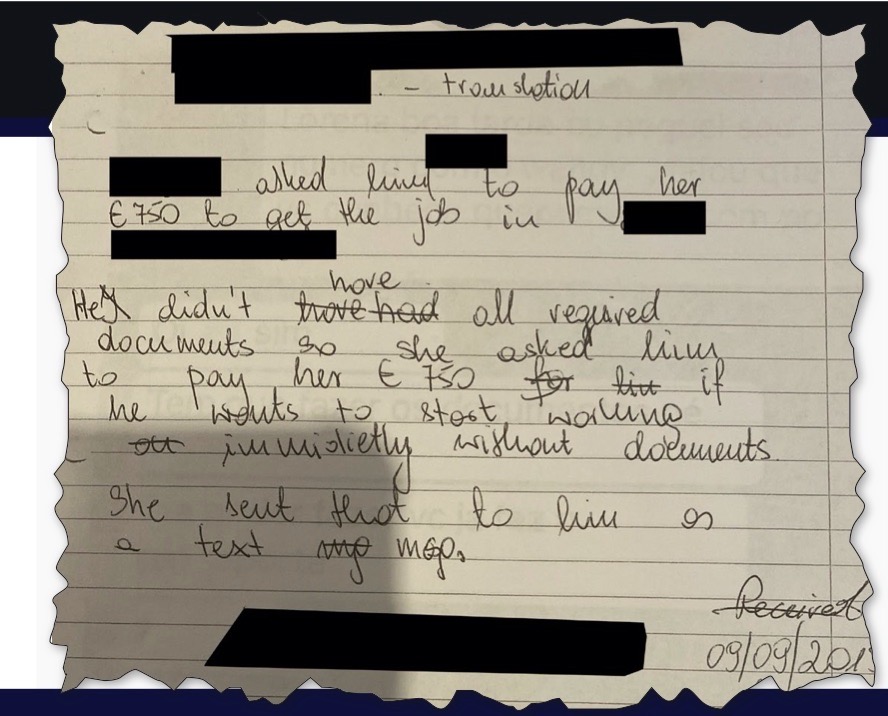 - translation
asked him to pay her
€750 to get the job in
have
He didn't have had all required
documents so she asked him
to pay her €750 for him if
he wants to start working
immidietly without documents
She sent that to him as
a text msg.
Received
09/09/201